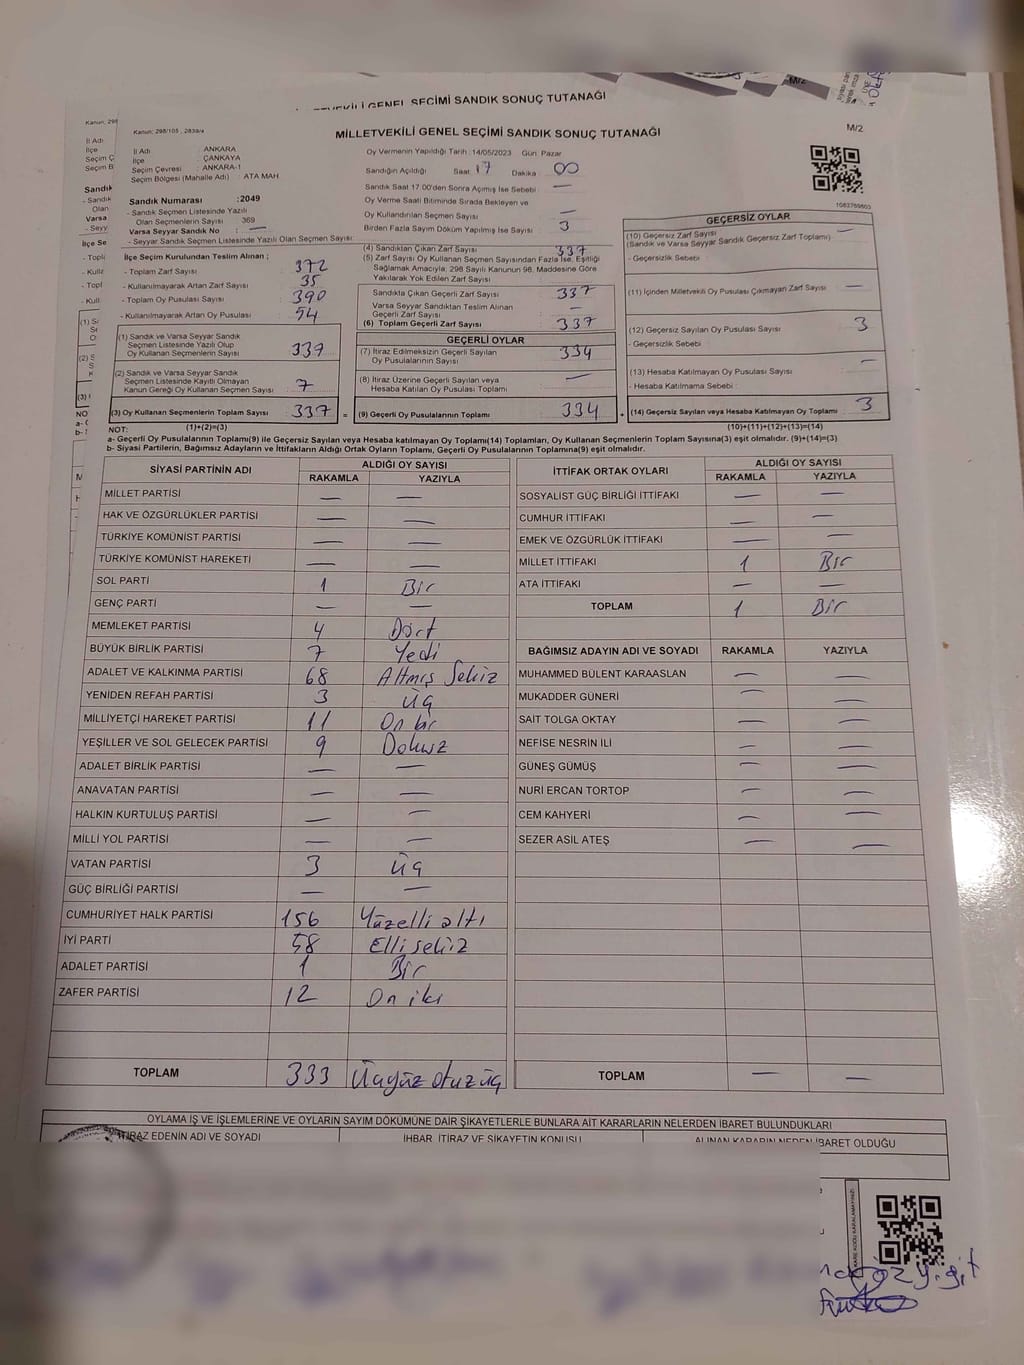 MİLLETVEKİLİ GENEL SEÇİMİ SANDIK SONUÇ TUTANAĞI
M/2
Kanun: 298/105, 2839/4
İl Adı : ANKARA
İlçe : ÇANKAYA
Seçim Çevresi : ANKARA-1
Seçim Bölgesi (Mahalle Adı) : ATA MAH.
Oy Vermenin Yapıldığı Tarih :14/05/2023 Gün: Pazar
Sandığın Açıldığı Saat: 17 Dakika: 00
Sandık Saat 17.00'den Sonra Açılmış İse Sebebi : —
Oy Verme Saati Bitiminde Sırada Bekleyen ve
Oy Kullandırılan Seçmen Sayısı : —
Birden Fazla Sayım Döküm Yapılmış İse Sayısı : 3
1083769803
Sandık Numarası :2049
- Sandık Seçmen Listesinde Yazılı
Olan Seçmenlerin Sayısı : 369
Varsa Seyyar Sandık No : —
- Seyyar Sandık Seçmen Listesinde Yazılı Olan Seçmen Sayısı:
İlçe Seçim Kurulundan Teslim Alınan ;
- Toplam Zarf Sayısı : 372
- Kullanılmayarak Artan Zarf Sayısı : 35
- Toplam Oy Pusulası Sayısı : 390
- Kullanılmayarak Artan Oy Pusulası : 54
(1) Sandık ve Varsa Seyyar Sandık
Seçmen Listesinde Yazılı Olup
Oy Kullanan Seçmenlerin Sayısı : 337
(2) Sandık ve Varsa Seyyar Sandık
Seçmen Listesinde Kayıtlı Olmayan
Kanun Gereği Oy Kullanan Seçmen Sayısı : 7
(3) Oy Kullanan Seçmenlerin Toplam Sayısı : 337
(1)+(2)=(3)
(4) Sandıktan Çıkan Zarf Sayısı : 337
(5) Zarf Sayısı Oy Kullanan Seçmen Sayısından Fazla İse, Eşitliği
Sağlamak Amacıyla; 298 Sayılı Kanunun 98. Maddesine Göre
Yakılarak Yok Edilen Zarf Sayısı : —
Sandıkta Çıkan Geçerli Zarf Sayısı : 337
Varsa Seyyar Sandıktan Teslim Alınan
Geçerli Zarf Sayısı : —
(6) Toplam Geçerli Zarf Sayısı : 337
GEÇERLİ OYLAR
(7) İtiraz Edilmeksizin Geçerli Sayılan
Oy Pusulalarının Sayısı : 334
(8) İtiraz Üzerine Geçerli Sayılan veya
Hesaba Katılan Oy Pusulası Toplamı : —
= (9) Geçerli Oy Pusulalarının Toplamı : 334
GEÇERSİZ OYLAR
(10) Geçersiz Zarf Sayısı : —
(Sandık ve Varsa Seyyar Sandık Geçersiz Zarf Toplamı)
- Geçersizlik Sebebi :
(11) İçinden Milletvekili Oy Pusulası Çıkmayan Zarf Sayısı : —
(12) Geçersiz Sayılan Oy Pusulası Sayısı : 3
- Geçersizlik Sebebi :
(13) Hesaba Katılmayan Oy Pusulası Sayısı : —
- Hesaba Katılmama Sebebi :
+ (14) Geçersiz Sayılan veya Hesaba Katılmayan Oy Toplamı : 3
(10)+(11)+(12)+(13)=(14)
NOT:
a- Geçerli Oy Pusulalarının Toplamı(9) ile Geçersiz Sayılan veya Hesaba katılmayan Oy Toplamı(14) Toplamları, Oy Kullanan Seçmenlerin Toplam Sayısına(3) eşit olmalıdır. (9)+(14)=(3)
b- Siyasi Partilerin, Bağımsız Adayların ve İttifakların Aldığı Ortak Oyların Toplamı, Geçerli Oy Pusulalarının Toplamına(9) eşit olmalıdır.
SİYASİ PARTİNİN ADI ALDIĞI OY SAYISI
RAKAMLA YAZIYLA
MİLLET PARTİSİ — —
HAK VE ÖZGÜRLÜKLER PARTİSİ — —
TÜRKİYE KOMÜNİST PARTİSİ — —
TÜRKİYE KOMÜNİST HAREKETİ — —
SOL PARTİ 1 Bir
GENÇ PARTİ — —
MEMLEKET PARTİSİ 4 Dört
BÜYÜK BİRLİK PARTİSİ 7 Yedi
ADALET VE KALKINMA PARTİSİ 68 Altmış Sekiz
YENİDEN REFAH PARTİSİ 3 Üç
MİLLİYETÇİ HAREKET PARTİSİ 11 On bir
YEŞİLLER VE SOL GELECEK PARTİSİ 9 Dokuz
ADALET BİRLİK PARTİSİ — —
ANAVATAN PARTİSİ — —
HALKIN KURTULUŞ PARTİSİ — —
MİLLİ YOL PARTİSİ — —
VATAN PARTİSİ 3 Üç
GÜÇ BİRLİĞİ PARTİSİ — —
CUMHURİYET HALK PARTİSİ 156 Yüzelli altı
İYİ PARTİ 58 Elli sekiz
ADALET PARTİSİ 1 Bir
ZAFER PARTİSİ 12 On iki
TOPLAM 333 Üçyüz otuz üç
İTTİFAK ORTAK OYLARI ALDIĞI OY SAYISI
RAKAMLA YAZIYLA
SOSYALİST GÜÇ BİRLİĞİ İTTİFAKI — —
CUMHUR İTTİFAKI — —
EMEK VE ÖZGÜRLÜK İTTİFAKI — —
MİLLET İTTİFAKI 1 Bir
ATA İTTİFAKI — —
TOPLAM 1 Bir
BAĞIMSIZ ADAYIN ADI VE SOYADI RAKAMLA YAZIYLA
MUHAMMED BÜLENT KARAASLAN — —
MUKADDER GÜNERİ — —
SAİT TOLGA OKTAY — —
NEFİSE NESRİN İLİ — —
GÜNEŞ GÜMÜŞ — —
NURİ ERCAN TORTOP — —
CEM KAHYERİ — —
SEZER ASIL ATEŞ — —
TOPLAM — —
OYLAMA İŞ VE İŞLEMLERİNE VE OYLARIN SAYIM DÖKÜMÜNE DAİR ŞİKAYETLERLE BUNLARA AİT KARARLARIN NELERDEN İBARET BULUNDUKLARI
İTİRAZ EDENİN ADI VE SOYADI İHBAR, İTİRAZ VE ŞİKAYETİN KONUSU ALINAN KARARIN NEDEN İBARET OLDUĞU
KARE KODU KARALAMAYINIZ!